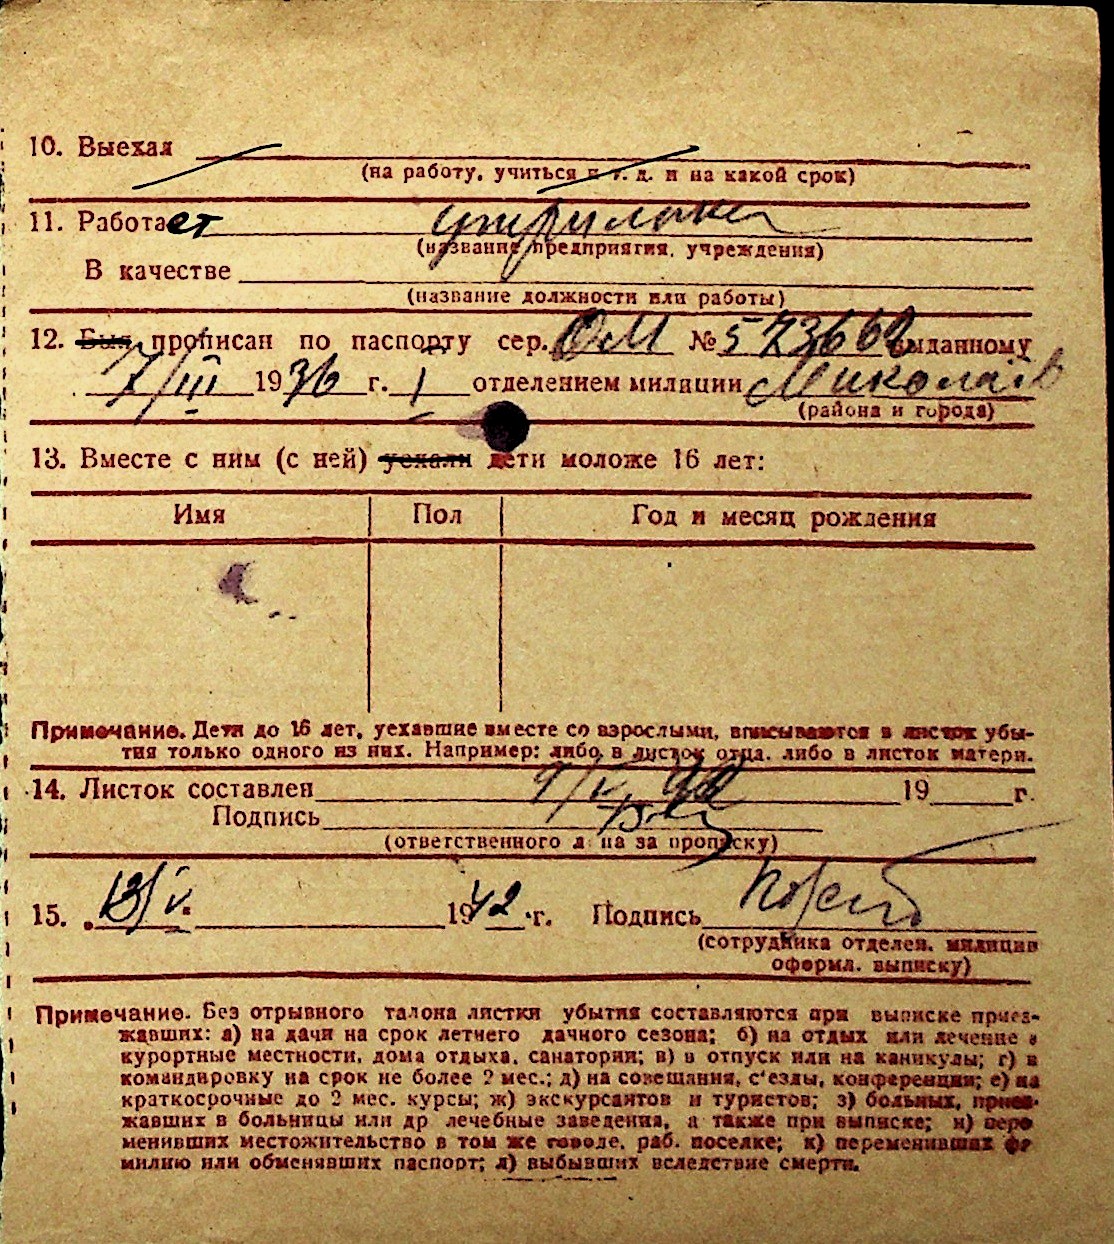 10. Выехал
(на работу, учиться и т. д. и на какой срок)
11. Работает
(название предприятия, учреждения)
В качестве
(название должности или работы)
12. Был прописан по паспорту сер. ОМ № 573662 выданному
7/III 1936 г. 1 отделением милиции Николаев
(района и города)
13. Вместе с ним (с ней) уехали дети моложе 16 лет:
Имя Пол Год и месяц рождения
Примечание. Дети до 16 лет, уехавшие вместе со взрослыми, вписываются в листок убы-
тия только одного из них. Например: либо в листок отца, либо в листок матери.
14. Листок составлен 9/V 42 19 г.
Подпись
(ответственного л на за прописку)
15. 13/V. 1942 г. Подпись
(сотрудника отделен. милиции
оформл. выписку)
Примечание. Без отрывного талона листки убытия составляются при выписке приез-
жавших: а) на дачи на срок летнего дачного сезона; б) на отдых или лечение в
курортные местности, дома отдыха, санатории; в) в отпуск или на каникулы; г) в
командировку на срок не более 2 мес.; д) на совещания, с'езды, конференции; е) на
краткосрочные до 2 мес. курсы; ж) экскурсантов и туристов; з) больных, приез-
жавших в больницы или др лечебные заведения, а также при выписке; и) пере
менивших местожительство в том же городе, раб. поселке; к) переменивших фа
милию или обменявших паспорт; л) выбывших вследствие смерти.